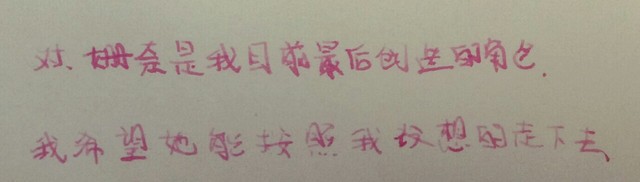 对、姗奈是我目前最后创造的角色.
我希望她能按照我设想的走下去